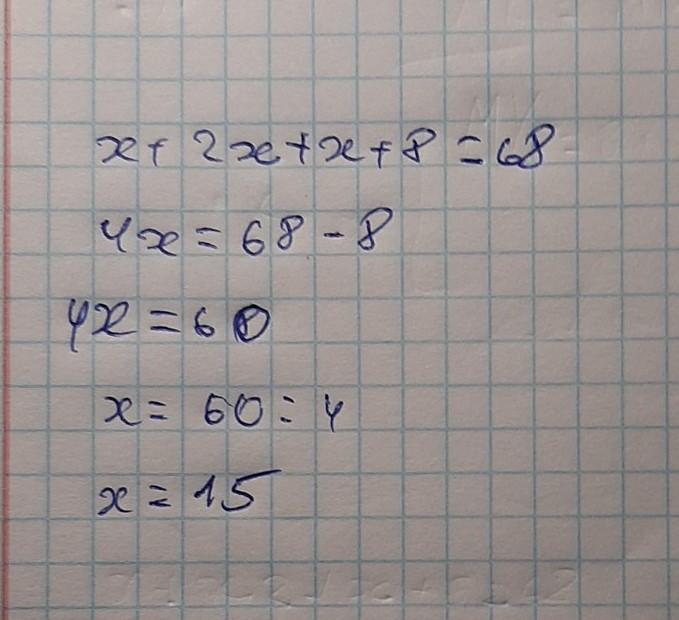 x + 2x + x + 8 = 68
4x = 68 - 8
4x = 60
x = 60 : 4
x = 15